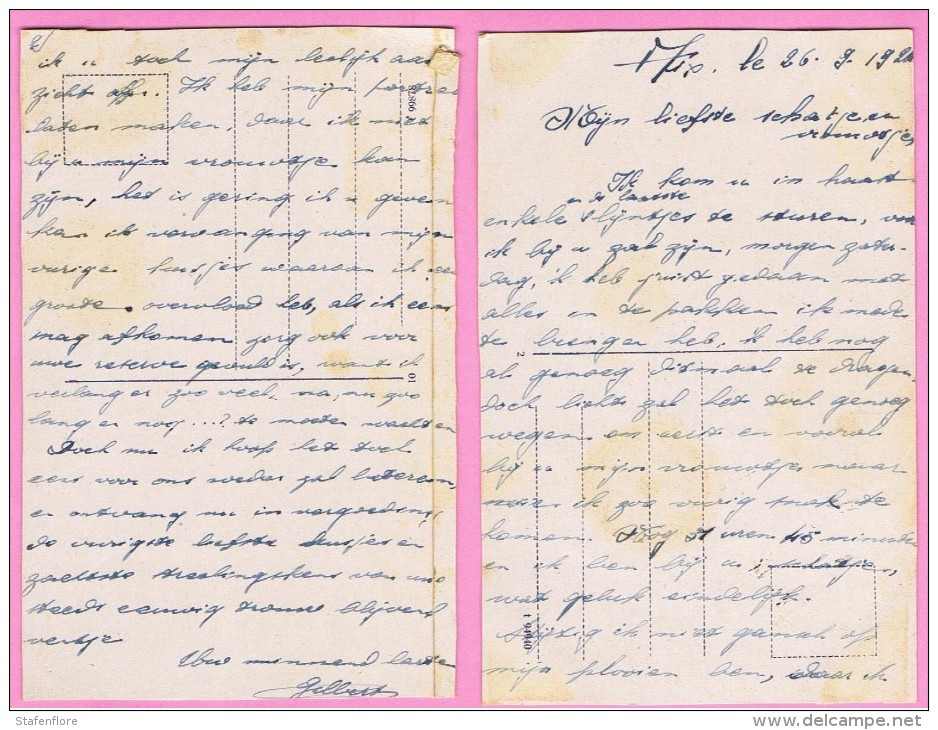 le 26. 9. 192
Mijn liefste schatje en
vrouwtje
Ik kom u in haast
en de laatste
enkele lijntjes te sturen, voor
ik bij u zal zijn, morgen zater-
dag, 'k heb juist gedaan met
alles in te pakken ik mede
te brengen heb, 'k heb nog
al genoeg ditmaal te dragen
doch lichts zal het toch genoeg
wegen om eerst en vooral
bij u mijn vrouwtje naar
ik zoo vurig snak te
komen. Nog 31 uren 45 minuten
en ik ben bij u schatje,
wat geluk eindelijk.
ik niet gansch op
mijn plooien ben, daar ik
t 94940
2
2/
ik u toch mijn leelijk aan
zicht Ik heb mijn portret
laten maken, daar ik niet
bij u mijn vrouwtje kan
zijn, het is gering ik u geven
kan in vervanging van mijn
vurige kusjes waaraan ik een
groote overvloed heb, als ik eens
mag afkomen zorg ook voor
uwe reserve gevuld is, want ik
verlang er zoo veel, na, nu zoo
lang er nog ...? te moeten wachten
Doch nu ik hoop het toch
eens voor ons weder zal beteren,
en ontvang nu in vergoeding
de vurigste liefste kusjes en
zoetste streelingskens van uw
steeds eeuwig trouw blijvend
ventje
Uw minnend
Gilbert
10
Stafenflore
www.delcampe.net